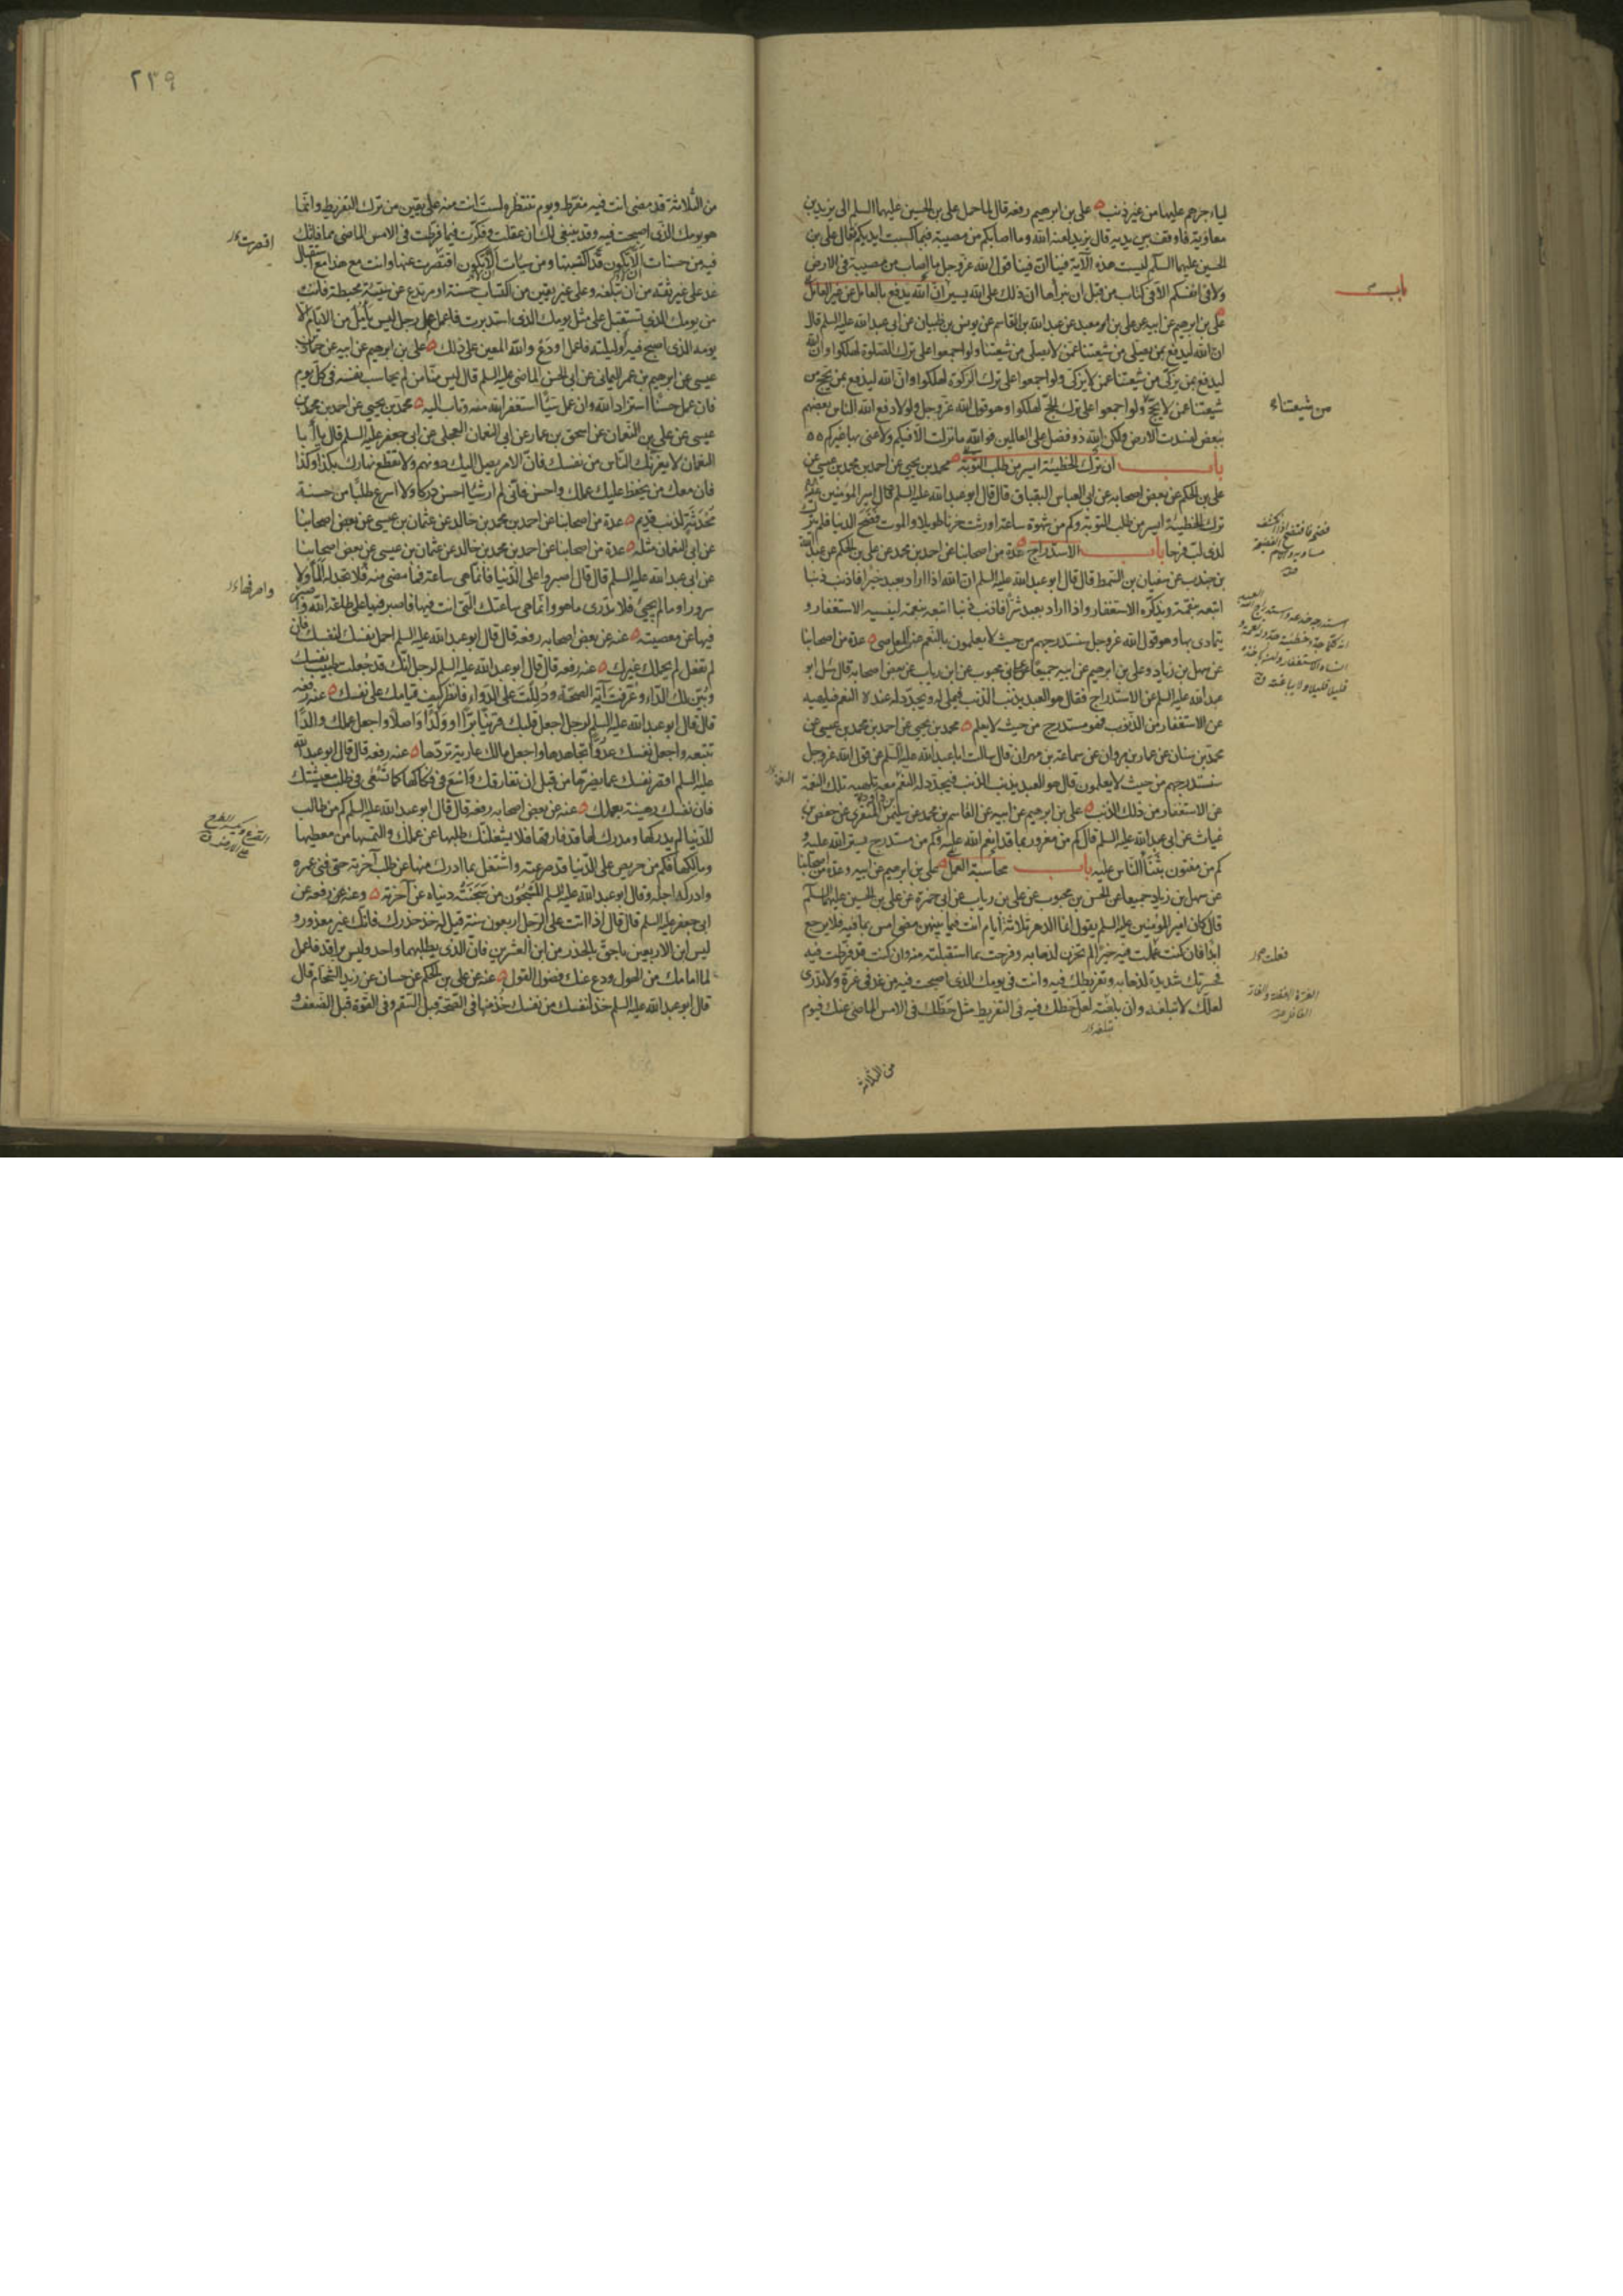 لياء جزهم عليها من غير ذنب علي بن ابرهيم رفعه قال لما حمل علي بن الحسين عليهما السلم الى يزيد بن
معاوية فاوقف بين يديه قال يزيد لعنه الله وما اصابكم من مصيبة فبما كسبت ايديكم فقال علي بن
الحسين عليهما السلم ليست هذه الآية فينا ان فينا قول الله عز وجل ما اصاب من مصيبة في الارض
ولا في انفسكم الا في كتاب من قبل ان نبرأها ان ذلك على الله يسير ان الله يدفع بالعامل عن غير العامل
باب
علي بن ابرهيم عن ابيه عن علي بن معبد عن عبدالله بن القاسم عن يونس بن ظبيان عن ابي عبدالله عليه السلم قال
ان الله ليدفع بمن يصلي من شيعتنا عمن لا يصلي من شيعتنا ولو اجمعوا على ترك الصلوة لهلكوا وان الله
ليدفع بمن يزكي من شيعتنا عمن لا يزكي ولو اجمعوا على ترك الزكوة لهلكوا وان الله ليدفع بمن يحج من
شيعتنا عمن لا يحج ولو اجمعوا على ترك الحج لهلكوا وهو قول الله عز وجل ولولا دفع الله الناس بعضهم
من شيعتنا
ببعض لفسدت الارض ولكن الله ذو فضل على العالمين فوالله ما نزلت الا فيكم ولا عنى بها غيركم
باب ان ترك الخطيئة ايسر من طلب التوبة محمد بن يحيى عن احمد بن محمد بن عيسى عن
علي بن الحكم عن بعض اصحابه عن ابي العباس البقباق قال قال ابو عبدالله عليه السلم قال امير المؤمنين عليه
ترك الخطيئة ايسر من طلب التوبة وكم من شهوة ساعة اورثت حزنا طويلا والموت فضح الدنيا فلم يترك
لذي لب فرحا باب الاستدراج عدة من اصحابنا عن احمد بن محمد عن علي بن الحكم عن عبدالله
بن جندب عن سفيان بن السمط قال قال ابو عبدالله عليه السلم ان الله اذا اراد بعبد خيرا فاذنب ذنبا
اتبعه بنقمة ويذكره الاستغفار واذا اراد بعبد شرا فاذنب ذنبا اتبعه بنعمة لينسيه الاستغفار و
يتمادى بها وهو قول الله عز وجل سنستدرجهم من حيث لا يعلمون بالنعم عند المعاصي عدة من اصحابنا
عن سهل بن زياد وعلي بن ابرهيم عن ابيه جميعا عن ابن محبوب عن ابن رياب عن بعض اصحابه قال سئل ابو
عبدالله عليه السلم عن الاستدراج فقال هو العبد يذنب الذنب فيملى له ويجدد له عنده النعم فيلهيه
عن الاستغفار من الذنوب فهو مستدرج من حيث لا يعلم محمد بن يحيى عن احمد بن محمد بن عيسى عن
محمد بن سنان عن عمار بن مروان عن سماعة بن مهران قال سالت ابا عبدالله عليه السلم عن قول الله عز وجل
سنستدرجهم من حيث لا يعلمون قال هو العبد يذنب الذنب فيجدد له النعم معه تلهيه تلك النعمة
عن الاستغفار من ذلك الذنب علي بن ابرهيم عن ابيه عن القاسم بن محمد عن سليمن المنقري عن حفص بن
غياث عن ابي عبدالله عليه السلم قال كم من مغرور بما قد انعم الله عليه وكم من مستدرج بستر الله عليه و
كم من مفتون بثناء الناس عليه باب محاسبة العمل علي بن ابرهيم عن ابيه وعدة من اصحابنا
عن سهل بن زياد جميعا عن الحسن بن محبوب عن علي بن رياب عن ابي حمزة عن علي بن الحسين عليهما السلم
قال كان امير المؤمنين عليه السلم يقول انما الدهر ثلاثة ايام انت فيما بينهن مضى امس بما فيه فلا يرجع
ابدا فان كنت عملت فيه خيرا لم تحزن لذهابه وفرحت بما استقبلته منه وان كنت قد فرطت فيه
فحسرتك شديدة لذهابه وتفريطك فيه وانت في يومك الذي اصبحت فيه من غد في غرة ولا تدري
لعلك لا تبلغه وان بلغته لعل حظك فيه في التفريط مثل حظك في الامس الماضي عنك فيوم
من الثلاثة
٢٣٩
من الثلاثة قد مضى انت فيه مفرط ويوم تنتظره لست انت منه على يقين من ترك التفريط وانما
هو يومك الذي اصبحت فيه وقد ينبغي لك ان عقلت وفكرت فيما فرطت في الامس الماضي مما فاتك
فيه من حسنات الا تكون قد اكتسبتها ومن سيئات الا تكون اقتصرت عنها وانت مع هذا مع استقبال
غد على غير ثقة من ان تبلغه وعلى غير يقين من اكتساب حسنة او مرتدع عن سيئة محبطة فانت
من يومك الذي تستقبل على مثل يومك الذي استدبرت فاعمل عمل رجل ليس يامل من الايام الا
يومه الذي اصبح فيه وليلته فاعمل او دع والله المعين على ذلك علي بن ابرهيم عن ابيه عن حماد بن
عيسى عن ابرهيم بن عمر اليماني عن ابي الحسن الماضي عليه السلم قال ليس منا من لم يحاسب نفسه في كل يوم
فان عمل حسنا استزاد الله وان عمل سيئا استغفر الله منه وتاب اليه محمد بن يحيى عن احمد بن محمد بن
عيسى عن علي بن النعمان عن اسحق بن عمار عن ابي النعمان العجلي عن ابي جعفر عليه السلم قال يا ابا
النعمان لا يغرنك الناس من نفسك فان الامر يصل اليك دونهم ولا تقطع نهارك بكذا وكذا
فان معك من يحفظ عليك عملك واحسن فاني لم ار شيئا احسن دركا ولا اسرع طلبا من حسنة
محدثة لذنب قديم عدة من اصحابنا عن احمد بن محمد بن خالد عن عثمان بن عيسى عن بعض اصحابنا
عن ابي النعمان مثله عدة من اصحابنا عن احمد بن محمد بن خالد عن عثمان بن عيسى عن بعض اصحابنا
عن ابي عبدالله عليه السلم قال قال اصبروا على الدنيا فانما هي ساعة فما مضى منه فلا تجد له الما ولا
سرورا وما لم يجئ فلا تدري ما هو وانما هي ساعتك التي انت فيها فاصبر فيها على طاعة الله واصبر
فيها عن معصيته عنه عن بعض اصحابه رفعه قال قال ابو عبدالله عليه السلم احمل نفسك لنفسك فان
لم تفعل لم يحملك غيرك عنه رفعه قال قال ابو عبدالله عليه السلم لرجل انك قد جعلت طبيب نفسك
وبين لك الداء وعرفت آية الصحة ودللت على الدواء فانظر كيف قيامك على نفسك عنه رفعه
قال قال ابو عبدالله عليه السلم لرجل اجعل قلبك قرينا برا او ولدا واصلا واجعل عملك والدا
تتبعه واجعل نفسك عدوا تجاهدها واجعل مالك عارية تردها عنه رفعه قال قال ابو عبدالله
عليه السلم اقصر نفسك عما يضرها من قبل ان تفارقك واسع في فكاكها كما تسعى في طلب معيشتك
فان نفسك رهينة بعملك عنه عن بعض اصحابه رفعه قال قال ابو عبدالله عليه السلم كم من طالب
للدنيا لم يدركها ومدرك لها قد فارقها فلا يشغلنك طلبها عن عملك والتمسها من معطيها
ومالكها فكم من حريص على الدنيا قد صرعته واشتغل بما ادرك منها عن طلب آخرته حتى فنى عمره
وادركه اجله وقال ابو عبدالله عليه السلم المسجون من سجنته دنياه عن آخرته وعنه رفعه عن
ابي جعفر عليه السلم قال قال اذا اتت على الرجل اربعون سنة قيل له خذ حذرك فانك غير معذور و
ليس ابن الاربعين باحق بالحذر من ابن العشرين فان الذي يطلبهما واحد وليس براقد فاعمل
لما امامك من الهول ودع عنك فضول القول عنه عن علي بن الحكم عن حسان عن زيد الشحام قال
قال ابو عبدالله عليه السلم خذ لنفسك من نفسك خذ منها في الصحة قبل السقم وفي القوة قبل الضعف و